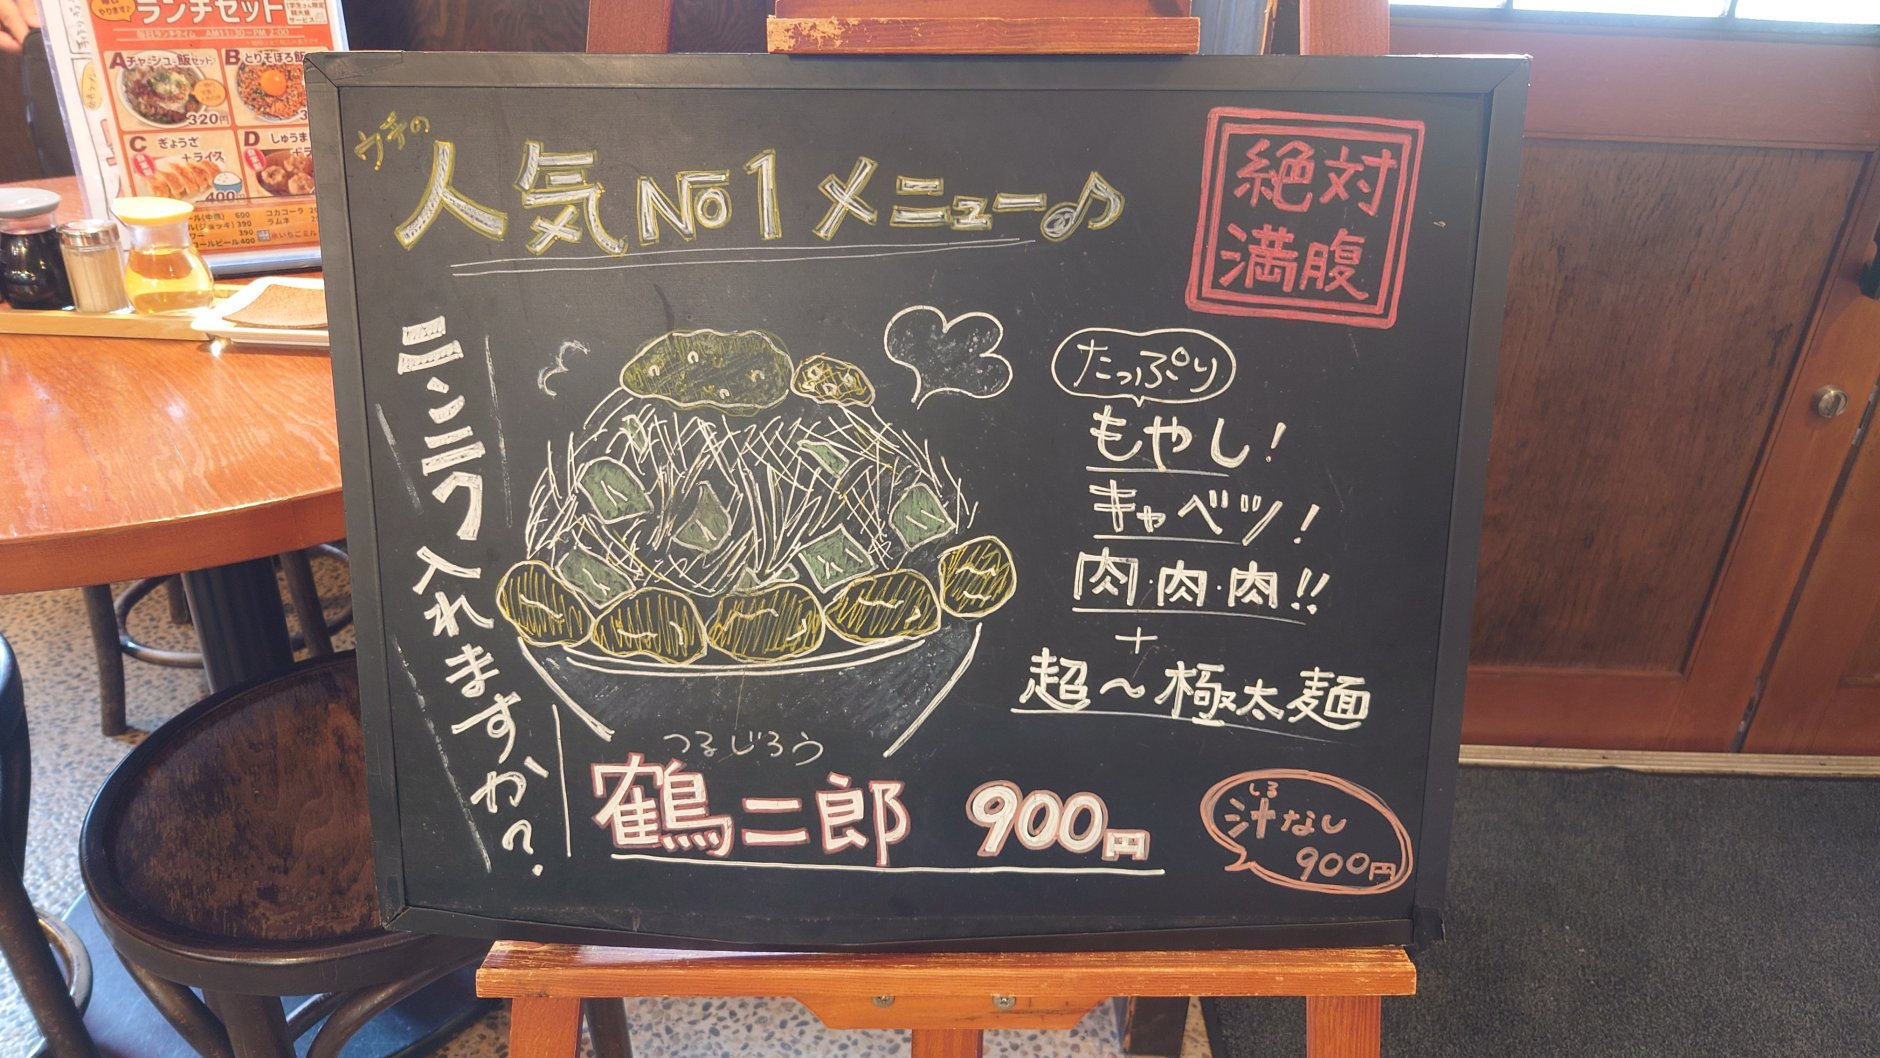 ランチセット
毎日ランチタイム AM11:30〜PM2:00
A チャーシュー飯セット
320円
B とりそぼろ飯
C ぎょうざ
+ライス
400
D しゅうま
ウチの
人気No1メニュー♪
絶対
満腹
ニンニク入れますか?
たっぷり
もやし!
キャベツ!
肉・肉・肉!!
+
超〜極太麺
つるじろう
鶴二郎 900円
しる
汁なし
900円